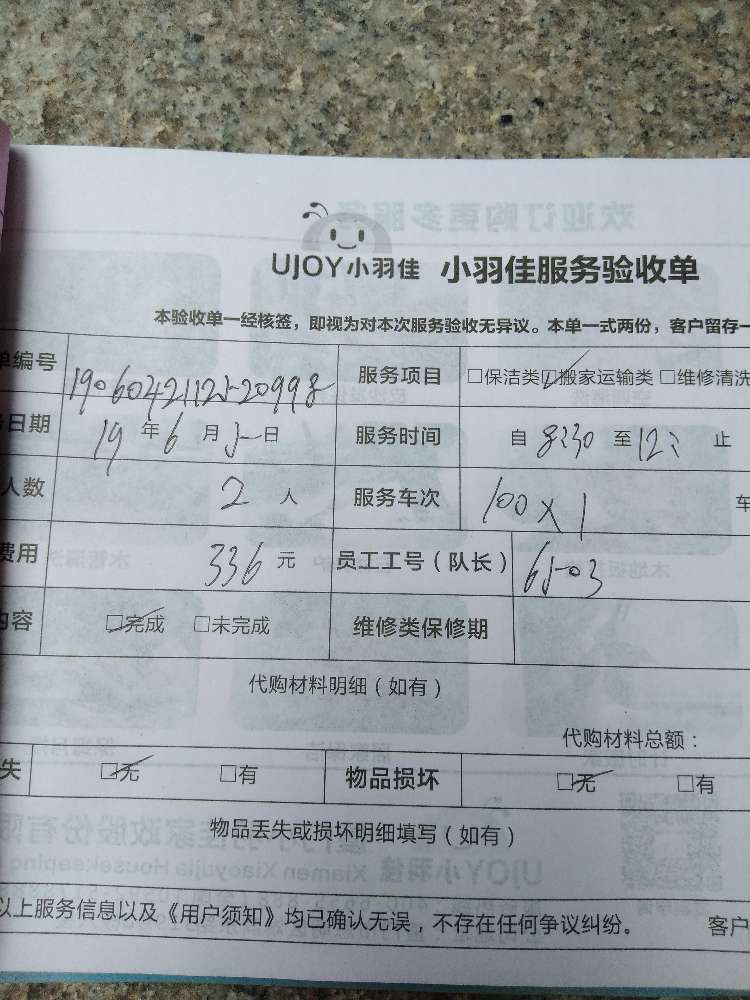 UJOY小羽佳 小羽佳服务验收单
本验收单一经核签，即视为对本次服务验收无异议。本单一式两份，客户留存一
单编号 服务项目 □保洁类 ☑搬家运输类 □维修清洗
务日期 19年6月5日 服务时间 自8:30至12: 止
人数 2人 服务车次 100×1 车
费用 336元 员工工号（队长） 6503
内容 ☑完成 □未完成 维修类保修期
代购材料明细（如有）
代购材料总额：
失 ☑无 □有 物品损坏 ☑无 □有
物品丢失或损坏明细填写（如有）
以上服务信息以及《用户须知》均已确认无误，不存在任何争议纠纷。 客户